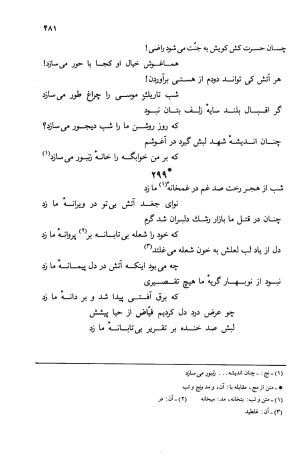 ۴۸۱
چسان حسرت کش کویش به جنّت می‌شود راضی!
هماغوش خیال او کجا با حور می‌سازد!
هر آتش کی تواند دودم از هستی برآوردن!
شب تاریکِ موسی را چراغ طور می‌سازد
گر اقبال بلند سایهٔ زلف بتان نبود
که روز روشن ما را شب دیجور می‌سازد؟
چنان اندیشهٔ شهد لبش گیرد در آغوشم
که بر من خوابگه را خانهٔ زنبور می‌سازد(۱)
*۲۹۹
شب از هجر رخت صد غم در غمخانهٔ(۱) ما زد
نوای جغد آتش بی‌تو در ویرانهٔ ما زد
چنان در قتل ما بازار رشک دلبران شد گرم
که خود را شعله بی‌تابانه بر(۲) پروانهٔ ما زد
دل از یاد لب لعلش به خون شعله می‌غلتد(۳)
چه می‌بود اینکه آتش در دل پیمانهٔ ما زد
نبود از نوبهار گریهٔ ما هیچ تقصیری
که برق آفتی پیدا شد و بر دانهٔ ما زد
چو عرض درد دل کردیم فیّاض از حیا پیشش
لبش صد خنده بر تقریر بی‌تابانهٔ ما زد
(۱) ـ نج: ـ چنان اندیشه... زنبور می‌سازد
* ـ متن از مج، مقابله با: آن، و مد ونج و تب
(۱) ـ متن و تب: بتخانه، مد: میخانه (۲) ـ آن: در
(۳) ـ آن: غلطید